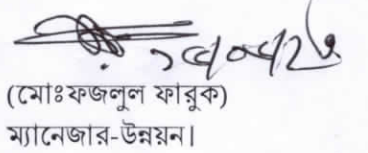 (মোঃফজলুল ফারুক)
ম্যানেজার-উন্নয়ন।